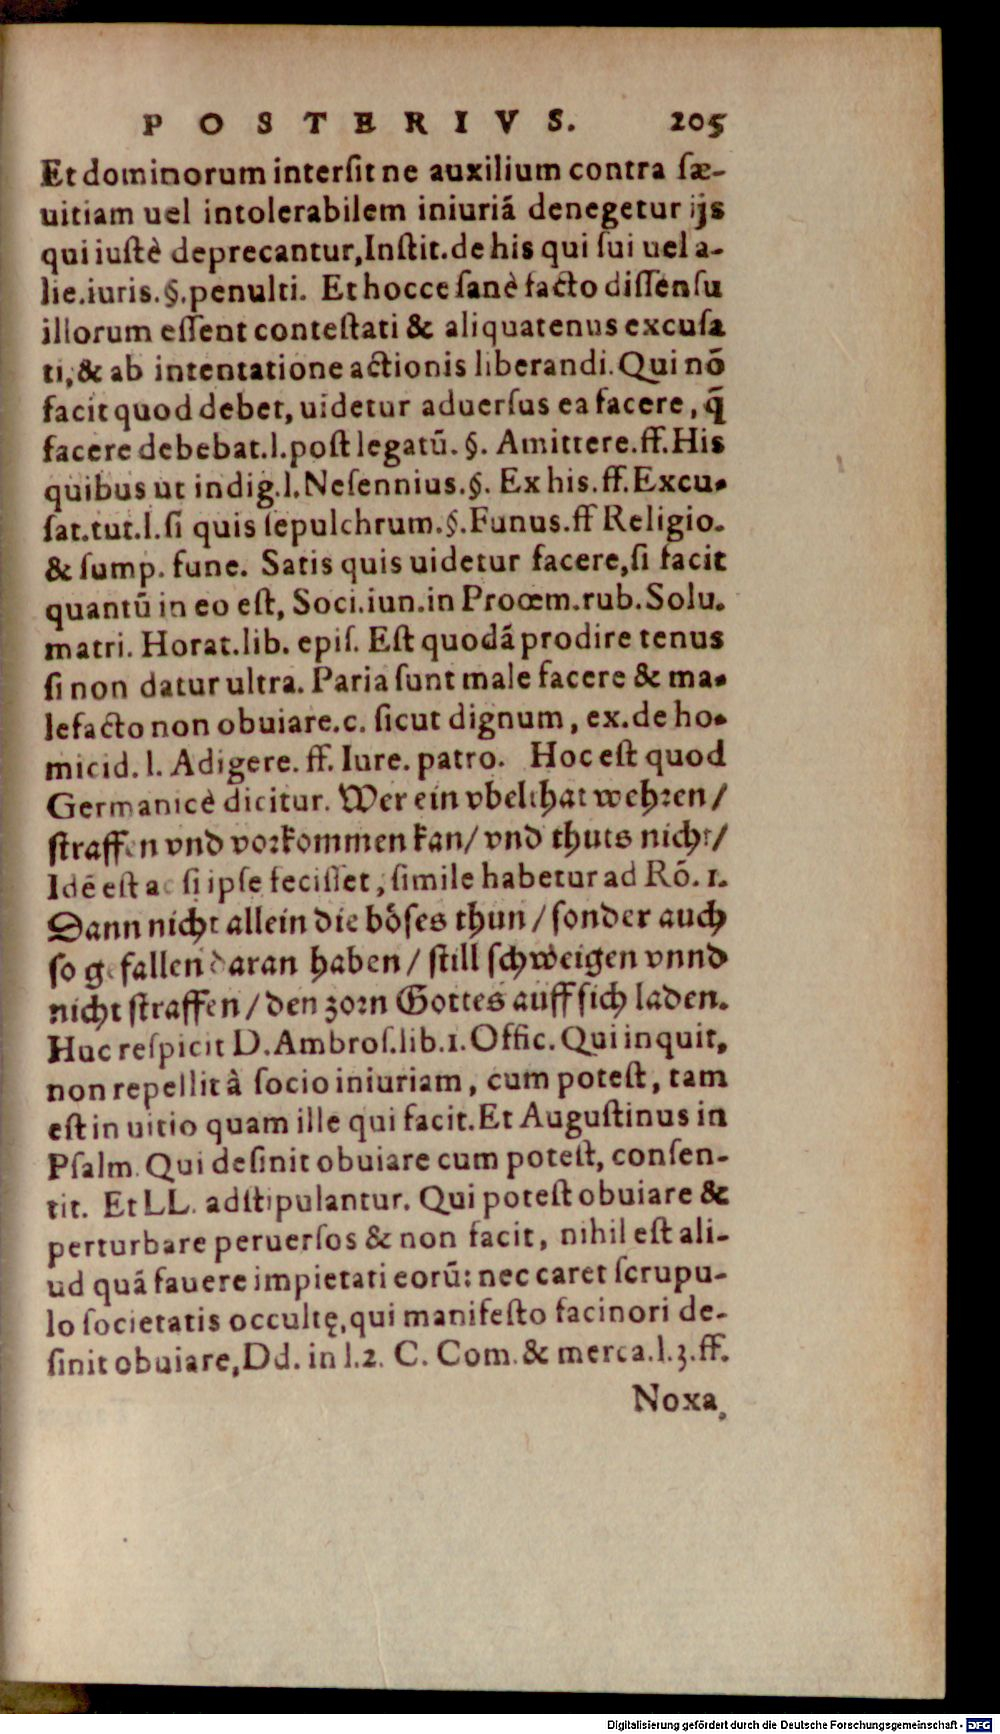 POSTERIVS. 205
Et dominorum intersit ne auxilium contra sæ-
uitiam uel intolerabilem iniuriã denegetur ijs
qui iustè deprecantur, Instit. de his qui sui uel a-
lie. iuris. §. penulti. Et hocce sanè facto dissensu
illorum essent contestati & aliquatenus excusa
ti, & ab intentatione actionis liberandi. Qui nõ
facit quod debet, uidetur aduersus ea facere, q̃
facere debebat. l. post legatũ. §. Amittere. ff. His
quibus ut indig. l. Nesennius. §. Ex his. ff. Excu-
sat. tut. l. si quis sepulchrum. §. Funus. ff Religio.
& sump. fune. Satis quis uidetur facere, si facit
quantũ in eo est, Soci. iun. in Proœm. rub. Solu.
matri. Horat. lib. epis. Est quodã prodire tenus
si non datur ultra. Paria sunt male facere & ma-
lefacto non obuiare. c. sicut dignum, ex. de ho-
micid. l. Adigere. ff. Iure. patro. Hoc est quod
Germanicè dicitur. Wer ein vbelthat wehren/
straffen vnd vorkommen kan/ vnd thuts nicht/
Idẽ est ac si ipse fecisset, simile habetur ad Rõ. 1.
Dann nicht allein die bôses thun/ sonder auch
so gefallen daran haben/ still schweigen vnnd
nicht straffen/ den zorn Gottes auff sich laden.
Huc respicit D. Ambros. lib. 1. Offic. Qui inquit,
non repellit à socio iniuriam, cum potest, tam
est in uitio quam ille qui facit. Et Augustinus in
Psalm. Qui desinit obuiare cum potest, consen-
tit. Et LL. adstipulantur. Qui potest obuiare &
perturbare peruersos & non facit, nihil est ali-
ud quã fauere impietati eorũ: nec caret scrupu-
lo societatis occultę, qui manifesto facinori de-
sinit obuiare, Dd. in l. 2. C. Com. & merca. l. 3. ff.
Noxa.
Digitalisierung gefördert durch die Deutsche Forschungsgemeinschaft - DFG